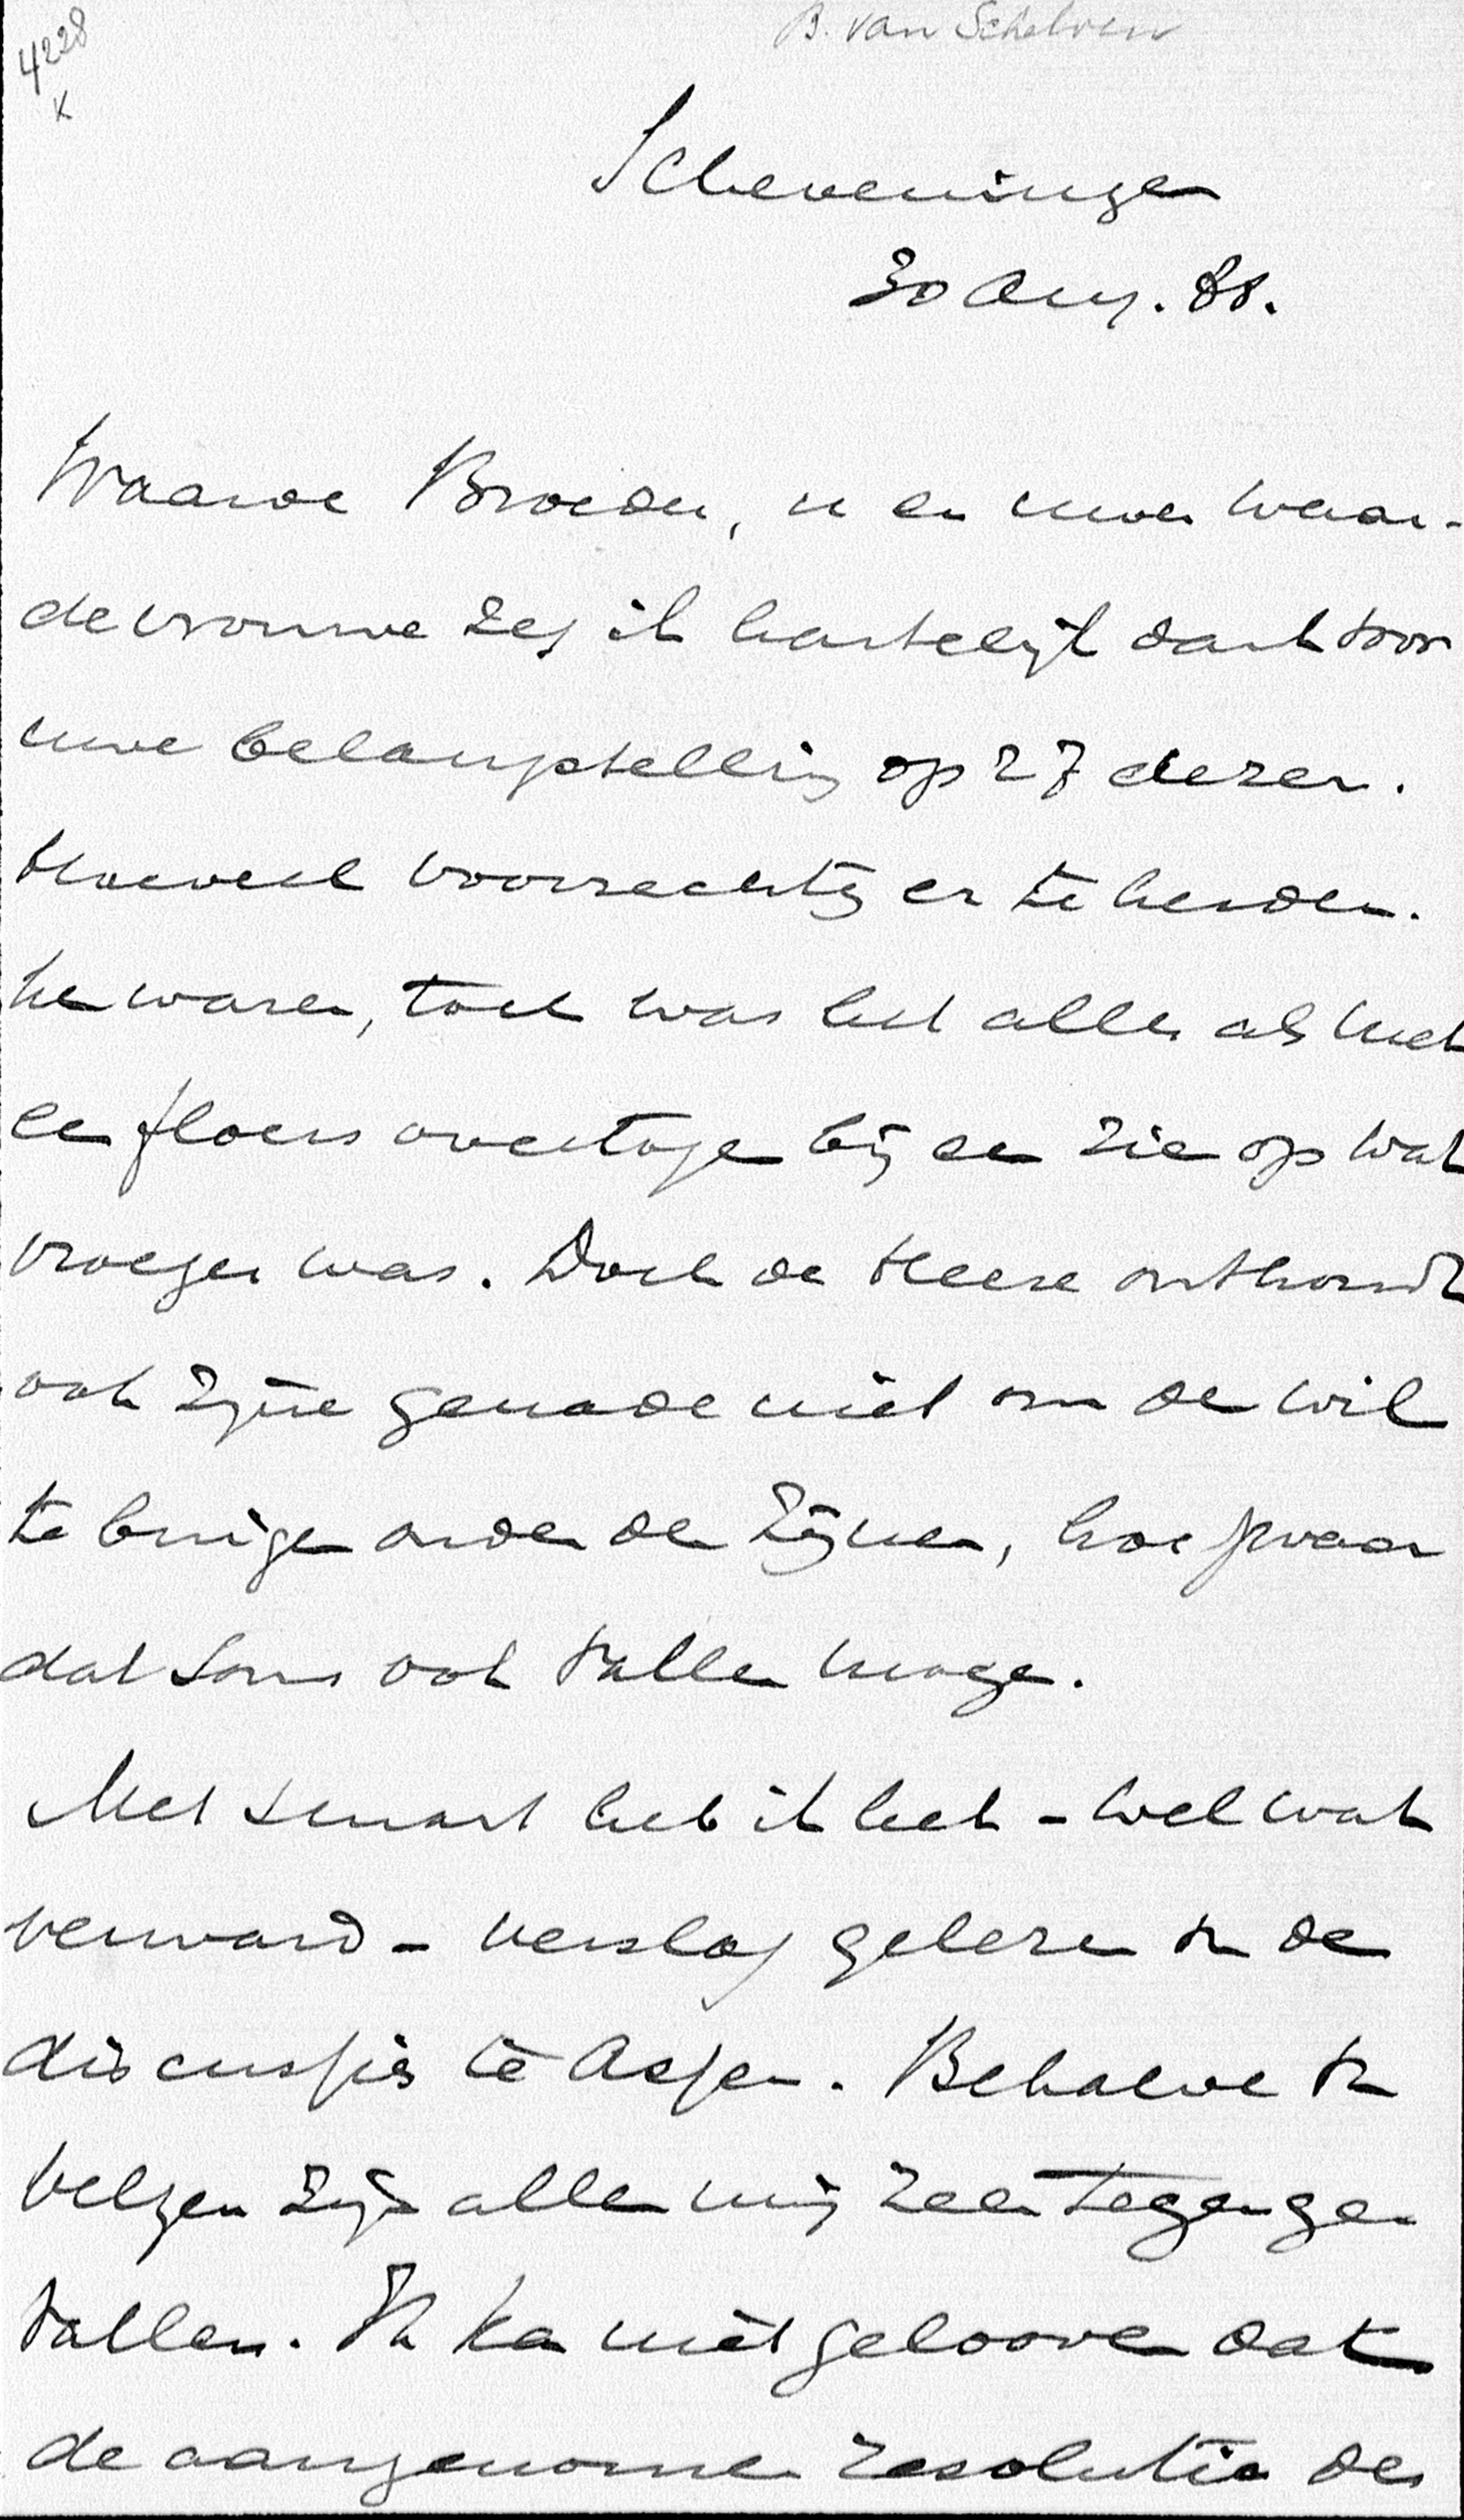 4228
K
B. van Schelven
Scheveningen
30 Aug. 88.
Waarde Broeder, u en uwe waar-
de vrouwe zeg ik hartelijk dank voor
uwe belangstelling op 27 dezer.
Hoeveel voorrechten er te herden-
ken waren, toch was het alles als met
een floers overtogen bij een zien op wat
vroeger was. Doch de Heere onthoudt
ook zijne genade niet om de wil
te buigen onder de Zijnen, hoe zwaar
dat soms ook vallen moge.
Met smart heb ik het - wel wat
verward - verslag gelezen van de
discussies te Assen. Behalve van
Velzen zijn allen mij zeer tegenge-
vallen. Ik kan niet gelooven dat
de aangenomen resolutie der